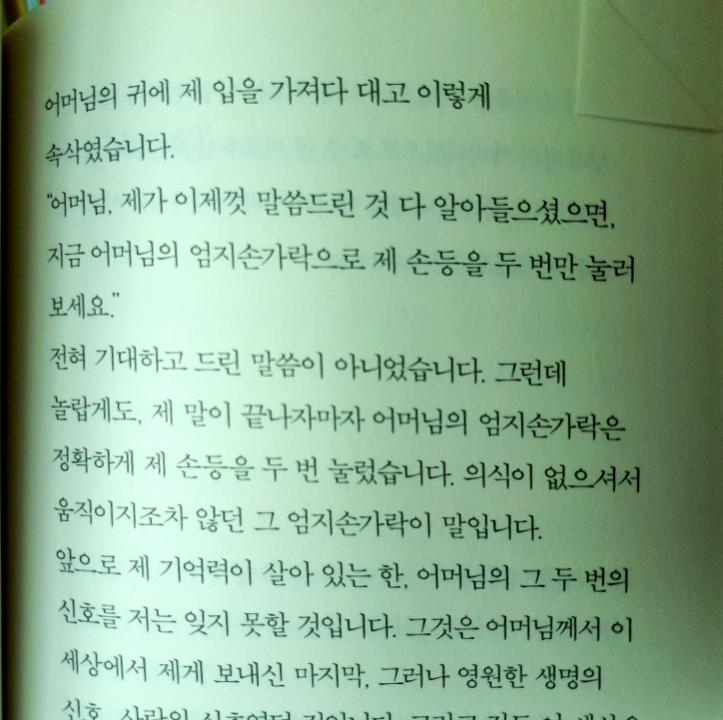 어머님의 귀에 제 입을 가져다 대고 이렇게
속삭였습니다.
“어머님, 제가 이제껏 말씀드린 것 다 알아들으셨으면,
지금 어머님의 엄지손가락으로 제 손등을 두 번만 눌러
보세요.”
전혀 기대하고 드린 말씀이 아니었습니다. 그런데
놀랍게도, 제 말이 끝나자마자 어머님의 엄지손가락은
정확하게 제 손등을 두 번 눌렀습니다. 의식이 없으셔서
움직이지조차 않던 그 엄지손가락이 말입니다.
앞으로 제 기억력이 살아 있는 한, 어머님의 그 두 번의
신호를 저는 잊지 못할 것입니다. 그것은 어머님께서 이
세상에서 제게 보내신 마지막, 그러나 영원한 생명의
신호, 사랑의